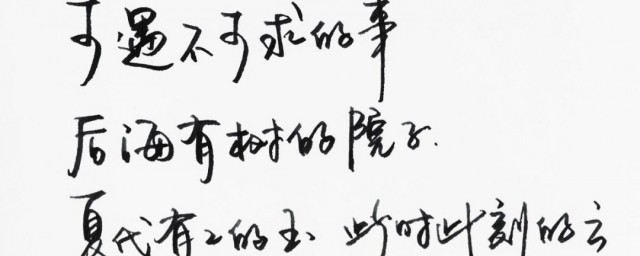 可遇不可求的事
后海有树的院子.
夏代有工的玉 此时此刻的云